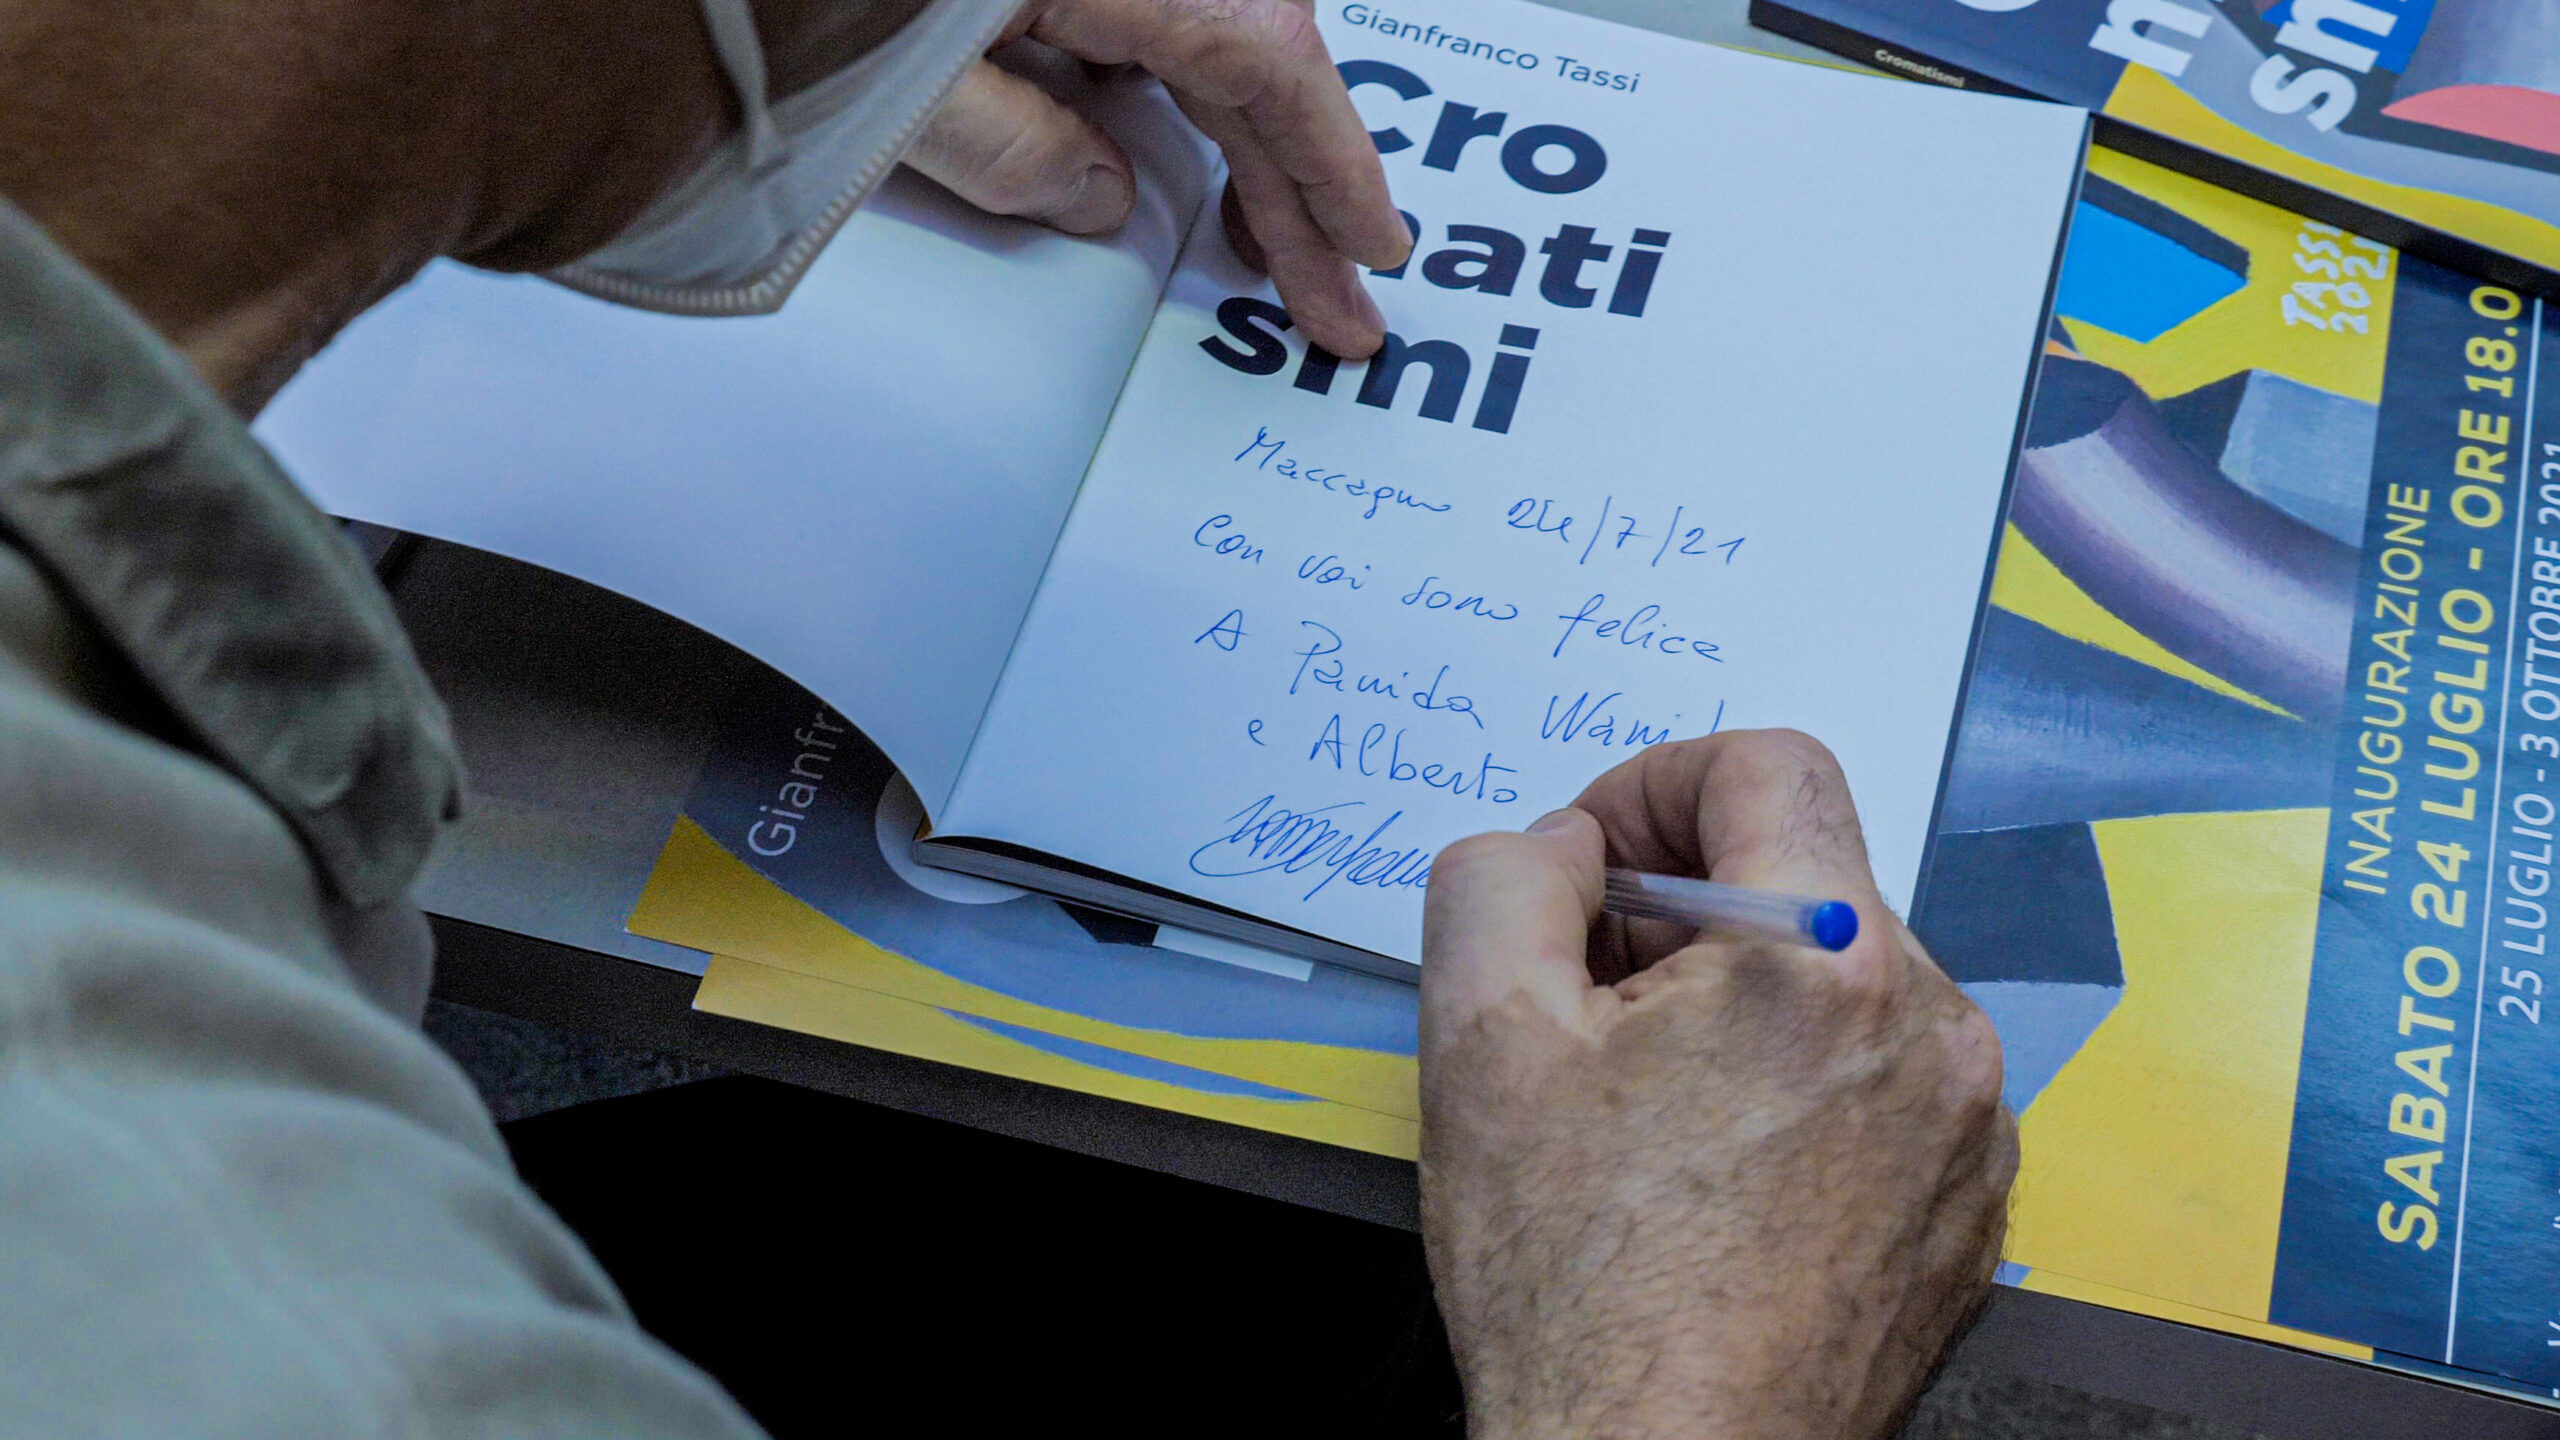 Gianfranco Tassi
Cro
mati
smi
Maccagno 24/7/21
Con voi sono felice
A Panida
e Alberto
Gianfr
Cromatismi
TASSI
2021
INAUGURAZIONE
SABATO 24 LUGLIO - ORE 18.0
25 LUGLIO - 3 OTTOBRE 2021